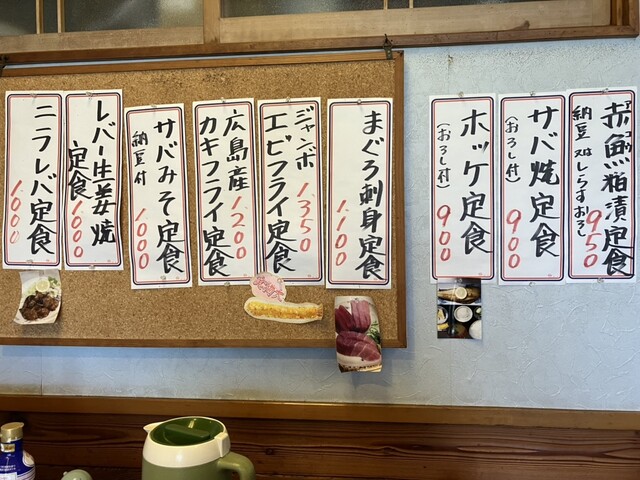 赤魚粕漬定食
納豆又はしらすおろし
950
サバ焼定食
(おろし付)
900
ホッケ定食
(おろし付)
900
まぐろ刺身定食
1,100
ジャンボ
エビフライ定食
1,350
広島産
カキフライ定食
1,200
サバみそ定食
納豆付
1,000
レバー生姜焼
定食
1,000
ニラレバ定食
1,000